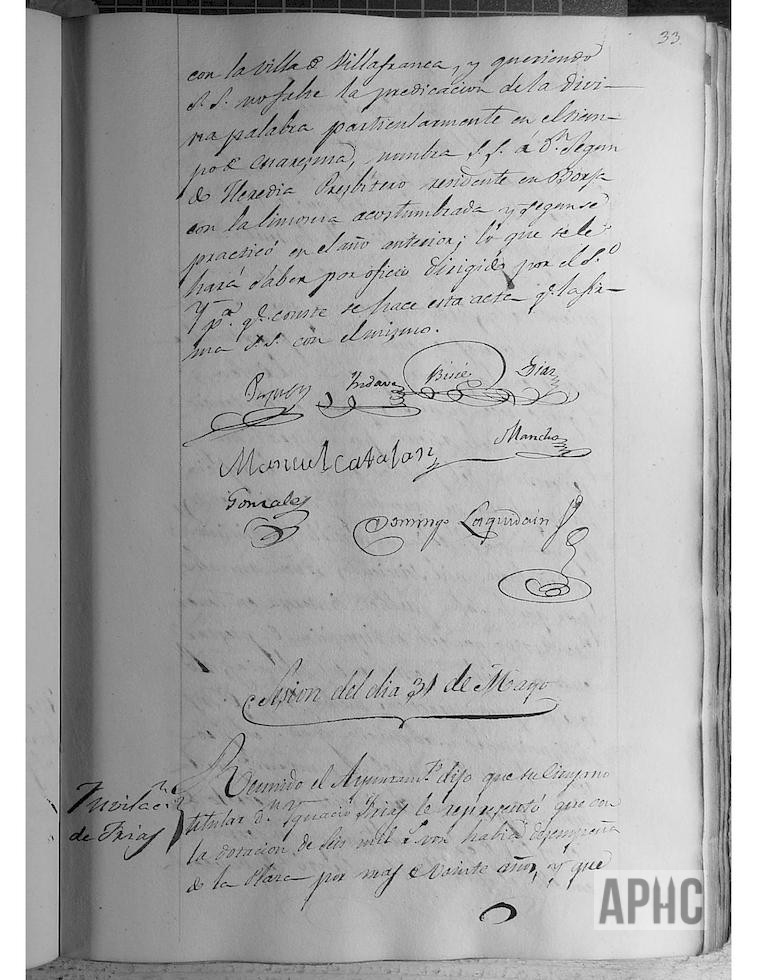 33
con la villa de Villafranca, y queriendo
S. S. no falte la predicacion de la divi-
na palabra particularmente en el tiem-
po de Cuaresma, nombra S. S. á Dn. Segun
do Heredia Presbitero residente en Borja
con la limosna acostumbrada y segun se
practicó en el año anterior; lo que se le
hará saber por oficio dirigido por el S.º
Y pa. qe. conste se hace esta acta qe. la fir-
ma S. S. con el mismo.
Diaz
Manuel Catalan
Mancho
Gonzalez
Domingo
Sesion del dia 31 de Mayo
Reunido el Ayuntamto. dijo que su Cirujano
titular dn. Ygnacio Frias le representó que con
la dotacion de seis mil rs. von. habia desempeña
do la Plaza por mas de veinte años, y que
de Frias
APHC